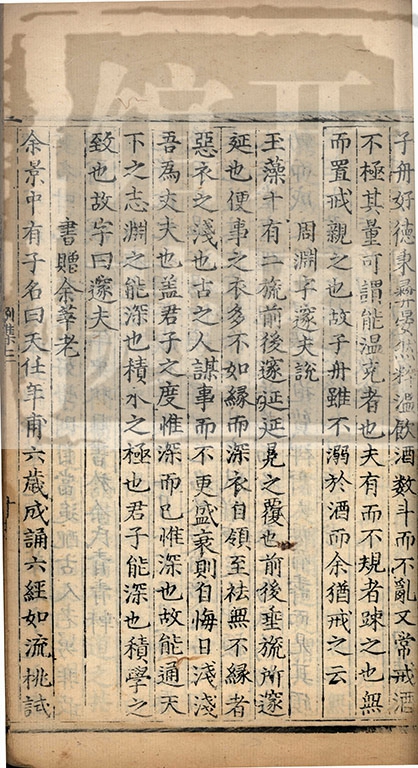 子册好德秉彛晏然粹温飲酒數斗而不亂又常戒酒
不極其量可謂能温克者也夫有而不規者疎之也無
而置戒親之也故子册雖不溺於酒而余猶戒之云
周淵字邃夫說
玉藻十有二旒前後邃延延冕之覆也前後垂旒所邃
延也便事之衣多不如緣而深衣自領至袪無不緣者
惡衣之淺也古之人謀事而不更盛衰則自悔曰淺淺
吾爲丈夫也盖君子之度惟深而已惟深也故能通天
下之志淵之能深也積水之極也君子能深也積學之
致也故字曰邃夫
書贈余莘老
余景中有子名曰天任年甫六歲成誦六經如流挑試